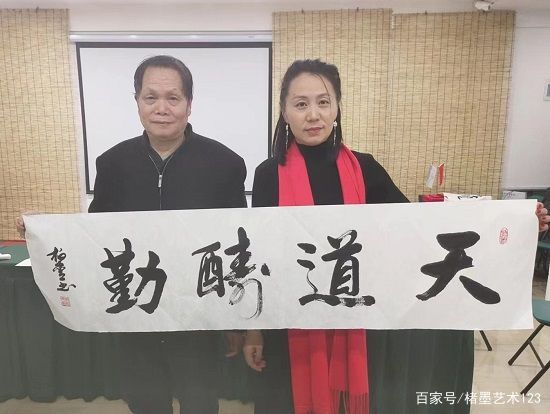 天道酬勤
楮墨书
百家号/楮墨艺术123